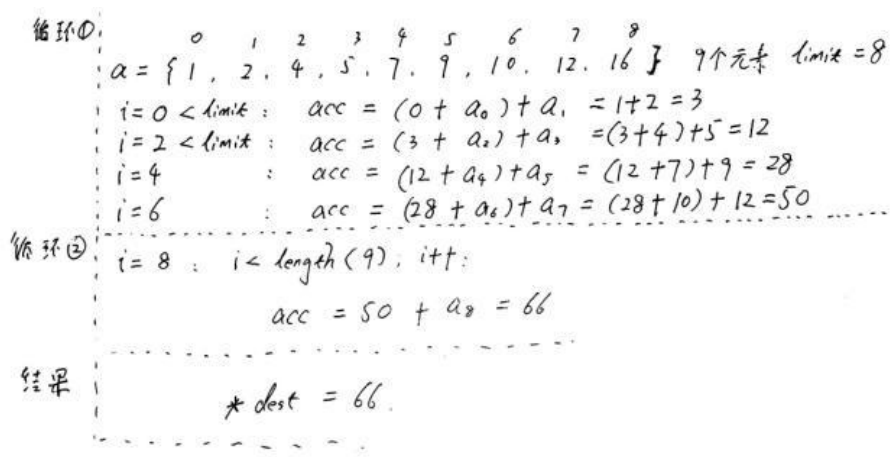 循环①
0 1 2 3 4 5 6 7 8
a = { 1 , 2 , 4 , 5 , 7 , 9 , 10 , 12 , 16 } 9个元素 limit = 8
i = 0 < limit : acc = (0 + a₀) + a₁ = 1+2 = 3
i = 2 < limit : acc = (3 + a₂) + a₃ = (3+4)+5 = 12
i = 4 : acc = (12 + a₄) + a₅ = (12+7)+9 = 28
i = 6 : acc = (28 + a₆) + a₇ = (28+10)+12 = 50
循环②
i = 8 : i < length (9) ; i++ :
acc = 50 + a₈ = 66
结果
* dest = 66.